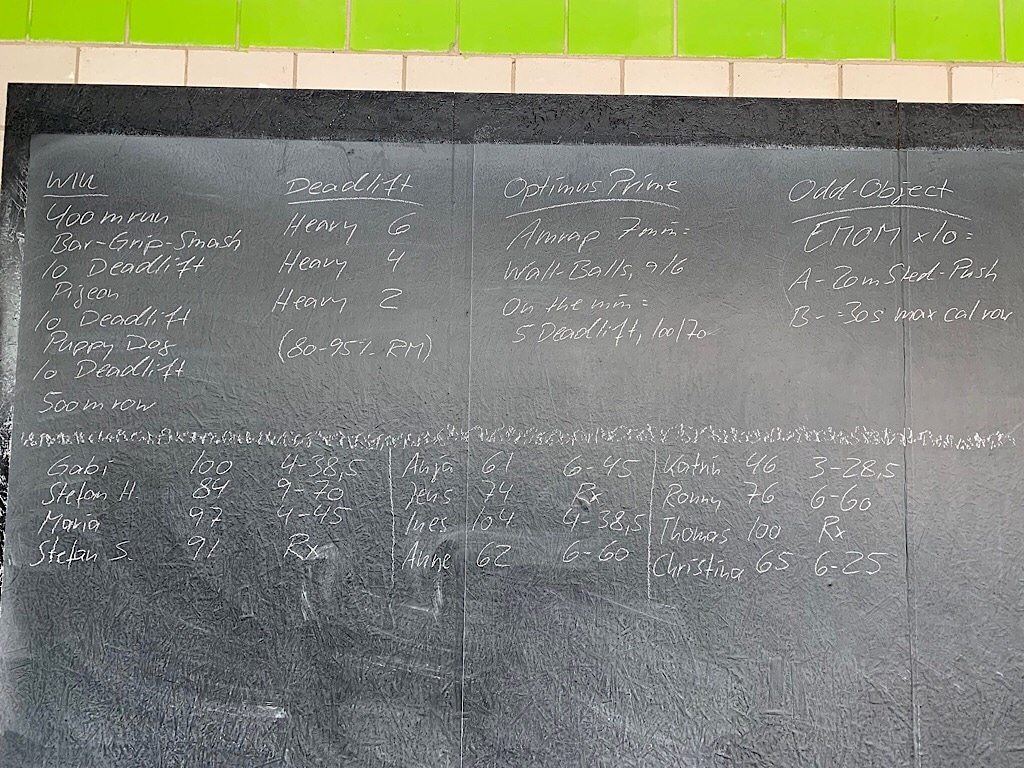 WU
400m run
Bar-Grip-Smash
10 Deadlift
Pigeon
10 Deadlift
Puppy Dog
10 Deadlift
500m row
Deadlift
Heavy 6
Heavy 4
Heavy 2
(80-95% RM)
Optimus Prime
Amrap 7min:
Wall-Balls, 9/6
On the min:
5 Deadlift, 100/70
Odd-Object
EMOM x10:
A- 20m Sled-Push
B- :30s max cal row
Gabi 100 4-38,5
Stefan H. 84 9-70
Maria 97 4-45
Stefan S. 91 Rx
Anja 61 6-45
Jens 74 Rx
Ines 104 4-38,5
Anne 62 6-60
Katrin 46 3-28,5
Ronny 76 6-60
Thomas 100 Rx
Christina 65 6-25